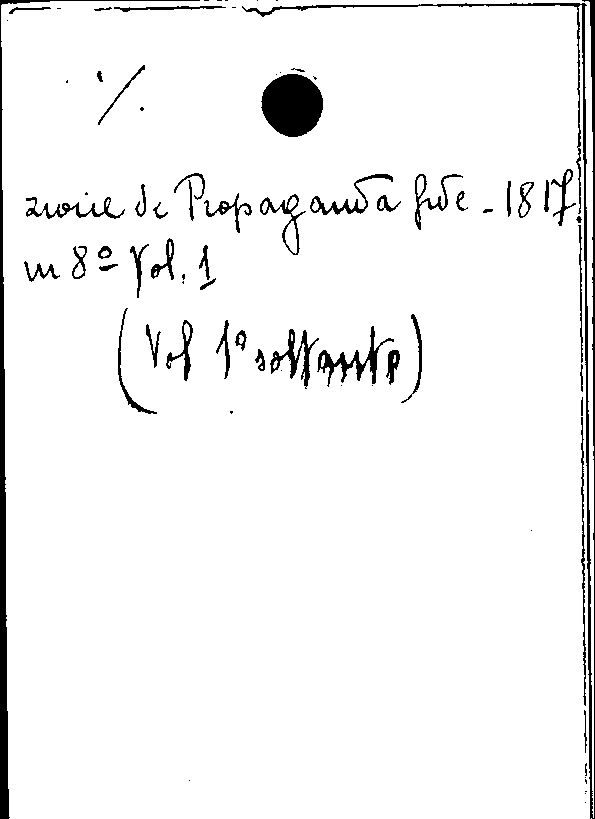 ./.
zione de Propaganda fide - 1817
in 8º Vol. 1
(Vol 1º soltanto)